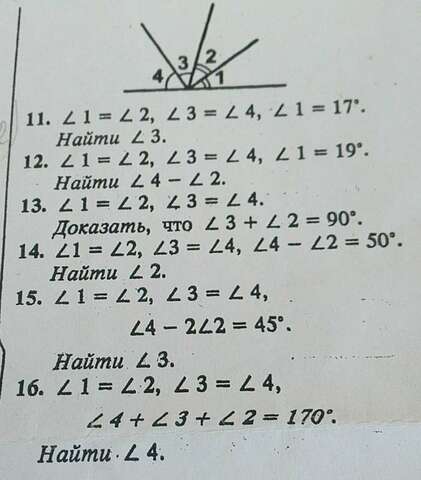 4 3 2 1
11. ∠ 1 = ∠ 2, ∠ 3 = ∠ 4, ∠ 1 = 17°.
Найти ∠ 3.
12. ∠ 1 = ∠ 2, ∠ 3 = ∠ 4, ∠ 1 = 19°.
Найти ∠ 4 − ∠ 2.
13. ∠ 1 = ∠ 2, ∠ 3 = ∠ 4.
Доказать, что ∠ 3 + ∠ 2 = 90°.
14. ∠1 = ∠2, ∠3 = ∠4, ∠4 − ∠2 = 50°.
Найти ∠ 2.
15. ∠ 1 = ∠ 2, ∠ 3 = ∠ 4,
∠4 − 2∠2 = 45°.
Найти ∠ 3.
16. ∠ 1 = ∠ 2, ∠ 3 = ∠ 4,
∠ 4 + ∠ 3 + ∠ 2 = 170°.
Найти ∠ 4.